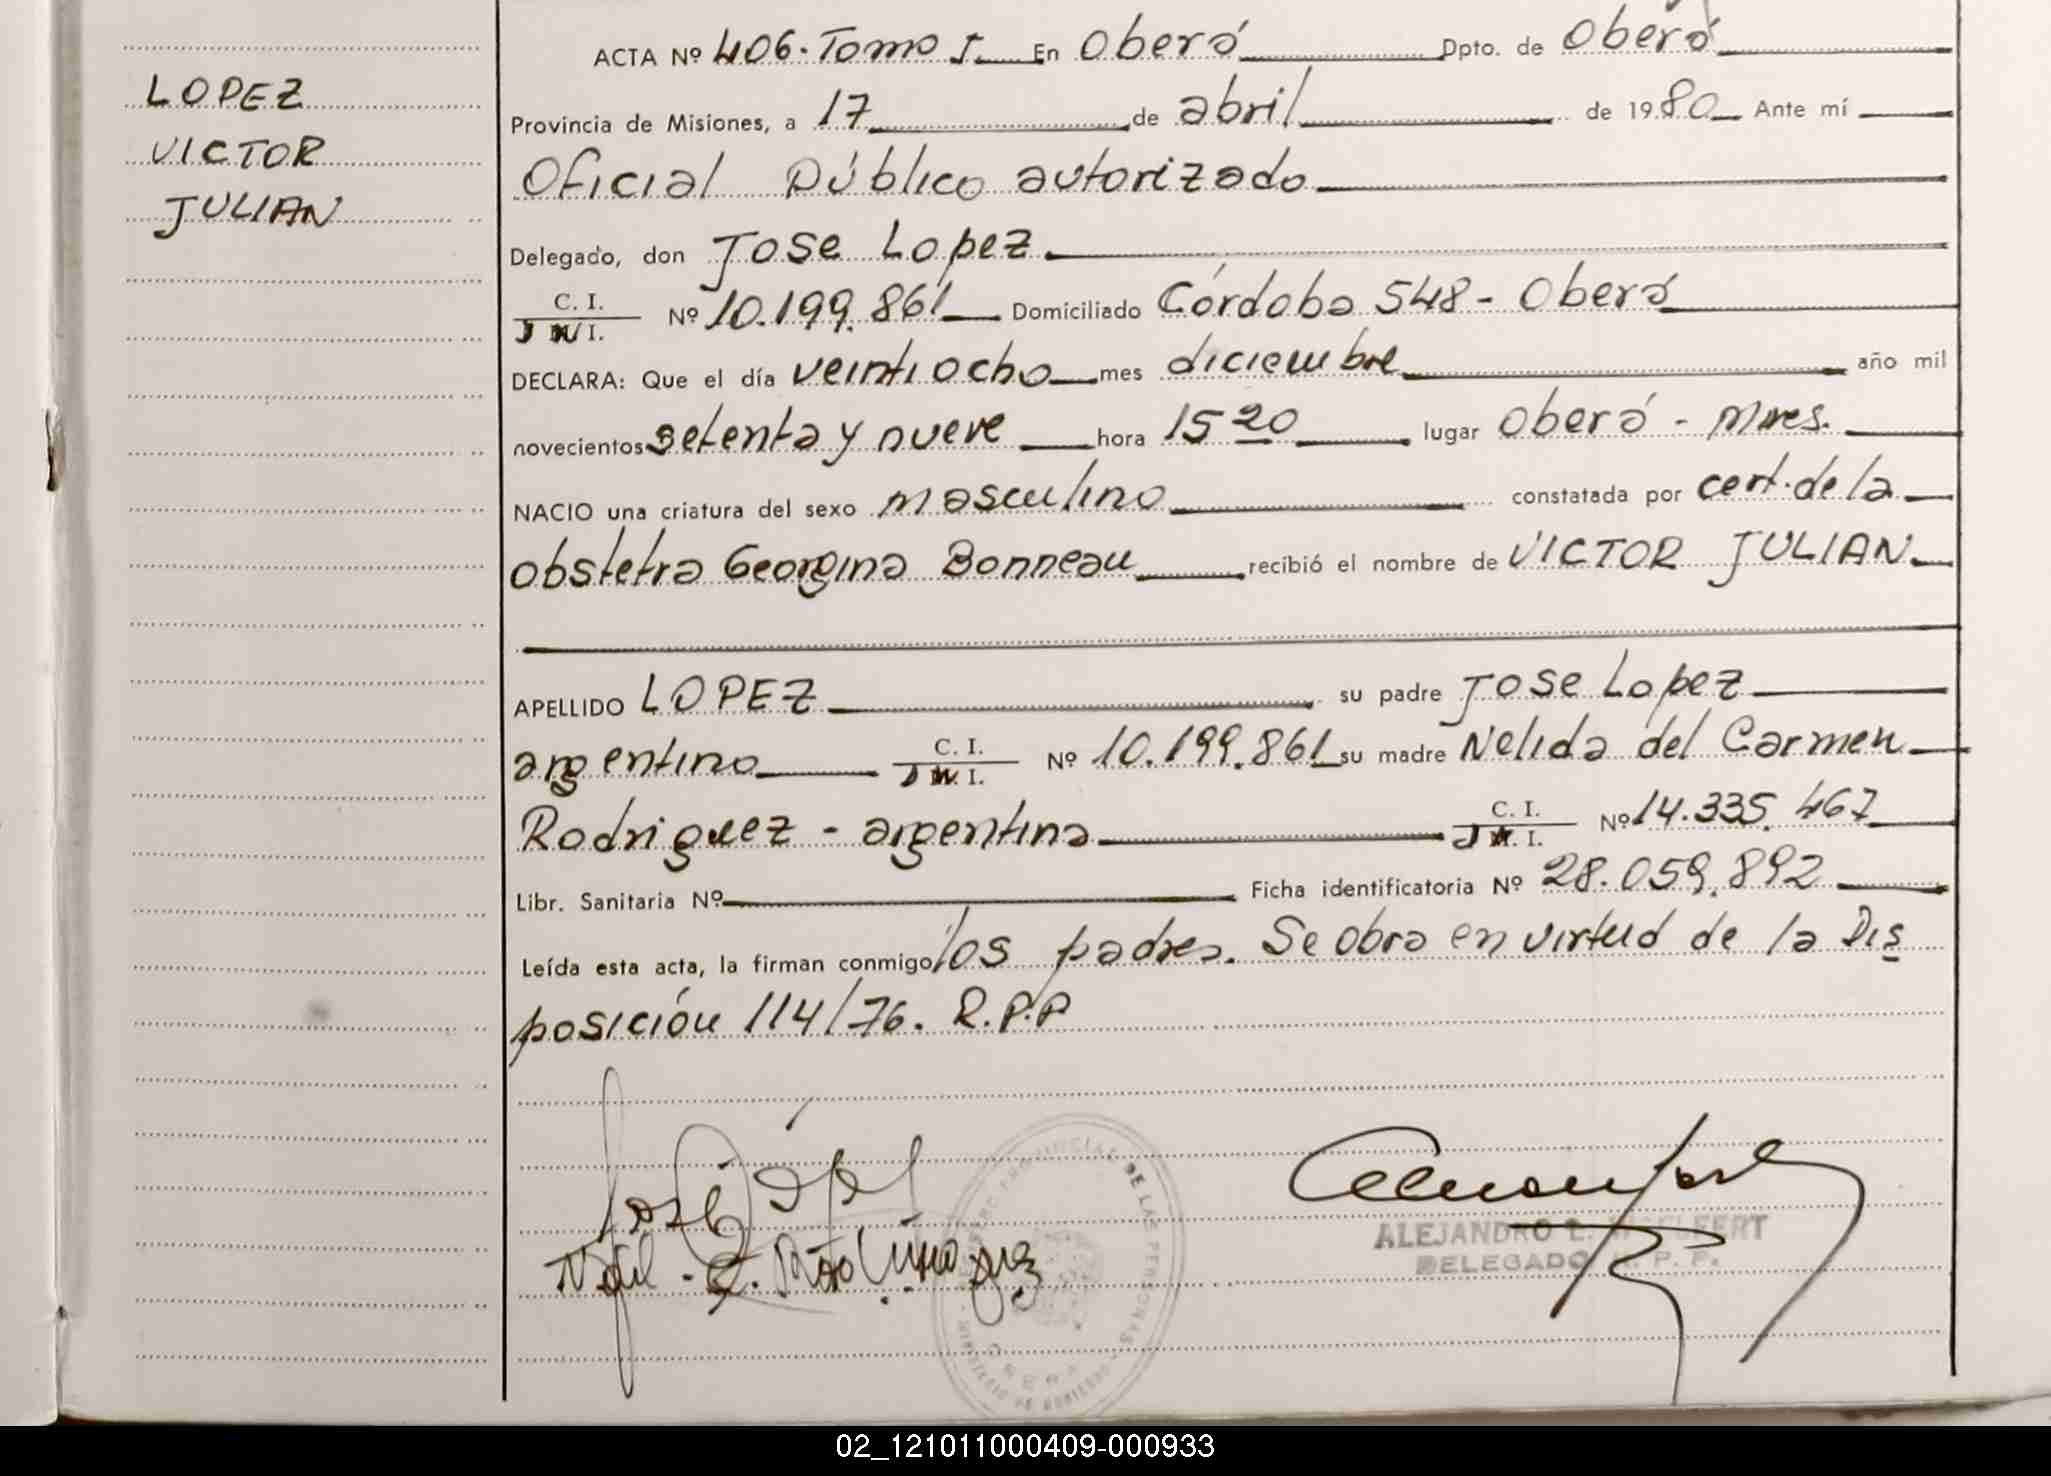 LOPEZ
VICTOR
JULIAN
ACTA Nº 406. Tomo I. En Oberá Dpto. de Oberá
Provincia de Misiones, a 17 de abril de 1980 Ante mí
Oficial Público autorizado
Delegado, don Jose Lopez
C. I.
Nº 10.199.861 Domiciliado Córdoba 548 - Oberá
I.
DECLARA: Que el día veintiocho mes diciembre año mil
novecientos setenta y nueve hora 15 20 lugar Oberá - Mnes.
NACIO una criatura del sexo masculino constatada por cert. de la
obstetra Georgina Bonneau recibió el nombre de VICTOR JULIAN
APELLIDO LOPEZ su padre Jose Lopez
argentino C. I. Nº 10.199.861 su madre Nelida del Carmen
I.
Rodriguez - argentina C. I. Nº 14.335.467
I.
Libr. Sanitaria Nº Ficha identificatoria Nº 28.059.892
Leída esta acta, la firman conmigo los padres. Se obra en virtud de la Dis
posición 114/76. R.P.P
DE LAS PERSONAS
ALEJANDRO E.
DELEGADO R. P. P.
02_121011000409-000933